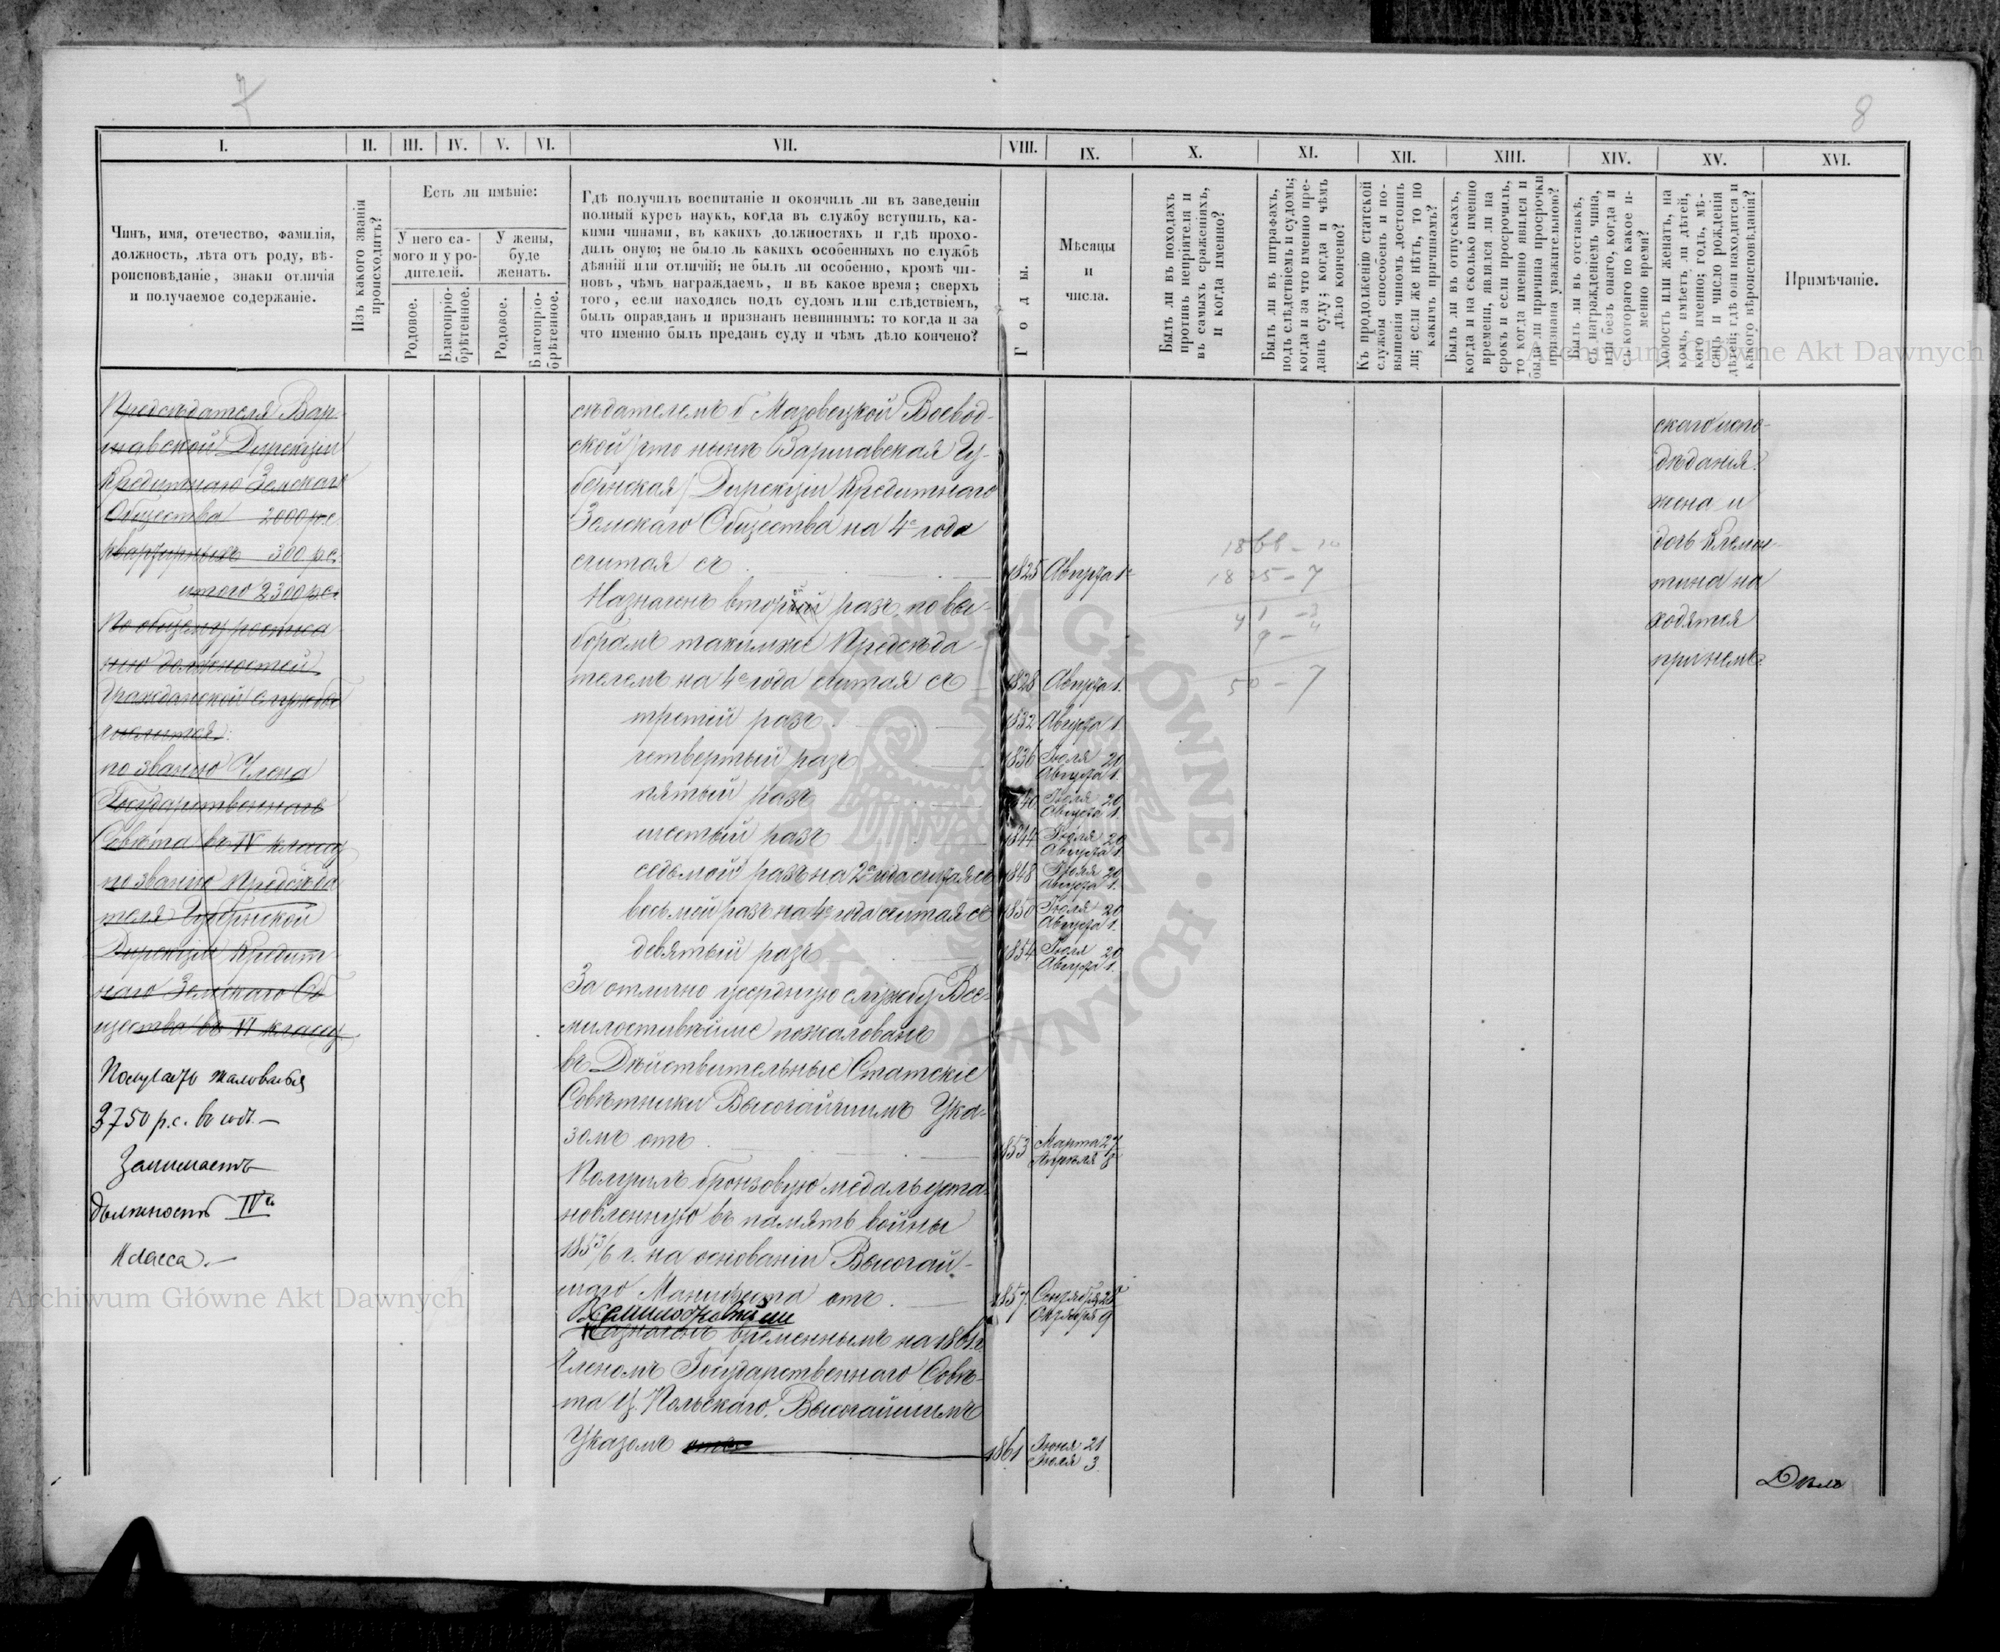 7
8
I.
II.
III.
IV.
V.
VI.
VII.
VIII.
IX.
X.
XI.
XII.
XIII.
XIV.
XV.
XVI.
Чинъ, имя, отечество, фамилія,
должность, лѣта отъ роду, вѣ-
роисповѣданіе, знаки отличія
и получаемое содержаніе.
Изъ какого званія
происходитъ?
Есть ли имѣніе:
У него са-
мого и у ро-
дителей.
У жены,
буде
женатъ.
Родовое.
Благопріо-
брѣтенное.
Родовое.
Благопріо-
брѣтенное.
Гдѣ получилъ воспитаніе и окончилъ ли въ заведеніи
полный курсъ наукъ, когда въ службу вступилъ, ка-
кими чинами, въ какихъ должностяхъ и гдѣ прохо-
дилъ оную; не было ль какихъ особенныхъ по службѣ
дѣяній или отличій; не былъ ли особенно, кромѣ чи-
новъ, чѣмъ награждаемъ, и въ какое время; сверхъ
того, если находясь подъ судомъ или слѣдствіемъ,
былъ оправданъ и признанъ невиннымъ: то когда и за
что именно былъ преданъ суду и чѣмъ дѣло кончено?
Годы.
Мѣсяцы
и
числа.
Былъ ли въ походахъ
противъ непріятеля и
въ самыхъ сраженіяхъ,
и когда именно?
Былъ ли въ штрафахъ,
подъ слѣдствіемъ и судомъ;
когда и за что именно пре-
данъ суду; когда и чѣмъ
дѣло кончено?
Къ продолженію статской
службы способенъ и по-
вышенія чиномъ достоинъ
ли; если же нѣтъ, то по
какимъ причинамъ?
Былъ ли въ отпускахъ,
когда и на сколько именно
времени, явился ли на
срокъ и если просрочилъ,
то когда именно явился и
была ли причина просрочки
признана уважительною?
Былъ ли въ отставкѣ,
съ награжденіемъ чина,
или безъ онаго, когда и
съ котораго по какое и-
менно время?
Холостъ или женатъ, на
комъ, имѣетъ ли дѣтей,
кого именно; годъ, мѣ-
сяцъ и число рожденія
дѣтей; гдѣ они находятся и
какого вѣроисповѣданія?
Примѣчаніе.
Предсѣдателя Вар-
шавской Дирекціи
Кредитнаго Земскаго
Общества 2000 р.с.
квартирныхъ 300 р.с.
итого 2300 р.с.
По общему росписа-
нію должностей
Гражданской службы
считая:
по званію Члена
Государственнаго
Совѣта въ IV классу
по званію Предсѣда-
теля Губернской
Дирекціи Кредит-
наго Земскаго Об-
щества въ VI классу
Получаетъ жалованья
3750 р.с. въ годъ. —
Занимаетъ
должность IVго
класса. —
сѣдателемъ б. Мазовецкой Воевод-
ской /что нынѣ Варшавская Гу-
бернская/ Дирекціи Кредитнаго
Земскаго Общества на 4е года
считая съ
1825 Августа 1е
Назначенъ вторый разъ по вы-
борамъ такимже Предсѣда-
телемъ на 4е года считая съ
1828 Августа 1.
третій разъ
1832 Августа 1
четвертый разъ
1836 Іюля 20
Августа 1.
пятый разъ
40 Іюля 20
Августа 1.
шестый разъ
1844 Іюля 20
Августа 1.
седьмой разъ на 2е года считая съ
1848 Іюля 20
Августа 1.
восьмой разъ на 4е года считая съ
1850 Іюля 20
Августа 1.
девятый разъ
1854 Іюля 20
Августа 1.
За отлично усердную службу Все-
милостивѣйше пожалованъ
въ Дѣйствительные Статскіе
Совѣтники Высочайшимъ Ука-
зомъ отъ
1853 Марта 27
Апрѣля 8
Получилъ бронзовую медаль уста-
новленную въ память войны
1853/6 г. на основаніи Высочай-
шаго Манифеста отъ
1857.
Октября 9
Всемилостивѣйше
Назначенъ временнымъ на 1861 г.
Членомъ Государственнаго Совѣ-
та Ц. Польскаго. Высочайшимъ
Указомъ отъ
1861 Іюня 21
Іюля 3
1866 - 10
1825 - 7
41 - 3
9 - 4
50 - 7
скаго испо-
вѣданія.
жена и
дочь Клемен-
тина на-
ходятся
при немъ.
Дѣлъ
Archiwum Główne Akt Dawnych
Archiwum Główne Akt Dawnych
ARCHIWUM GŁÓWNE · AKT DAWNYCH ·